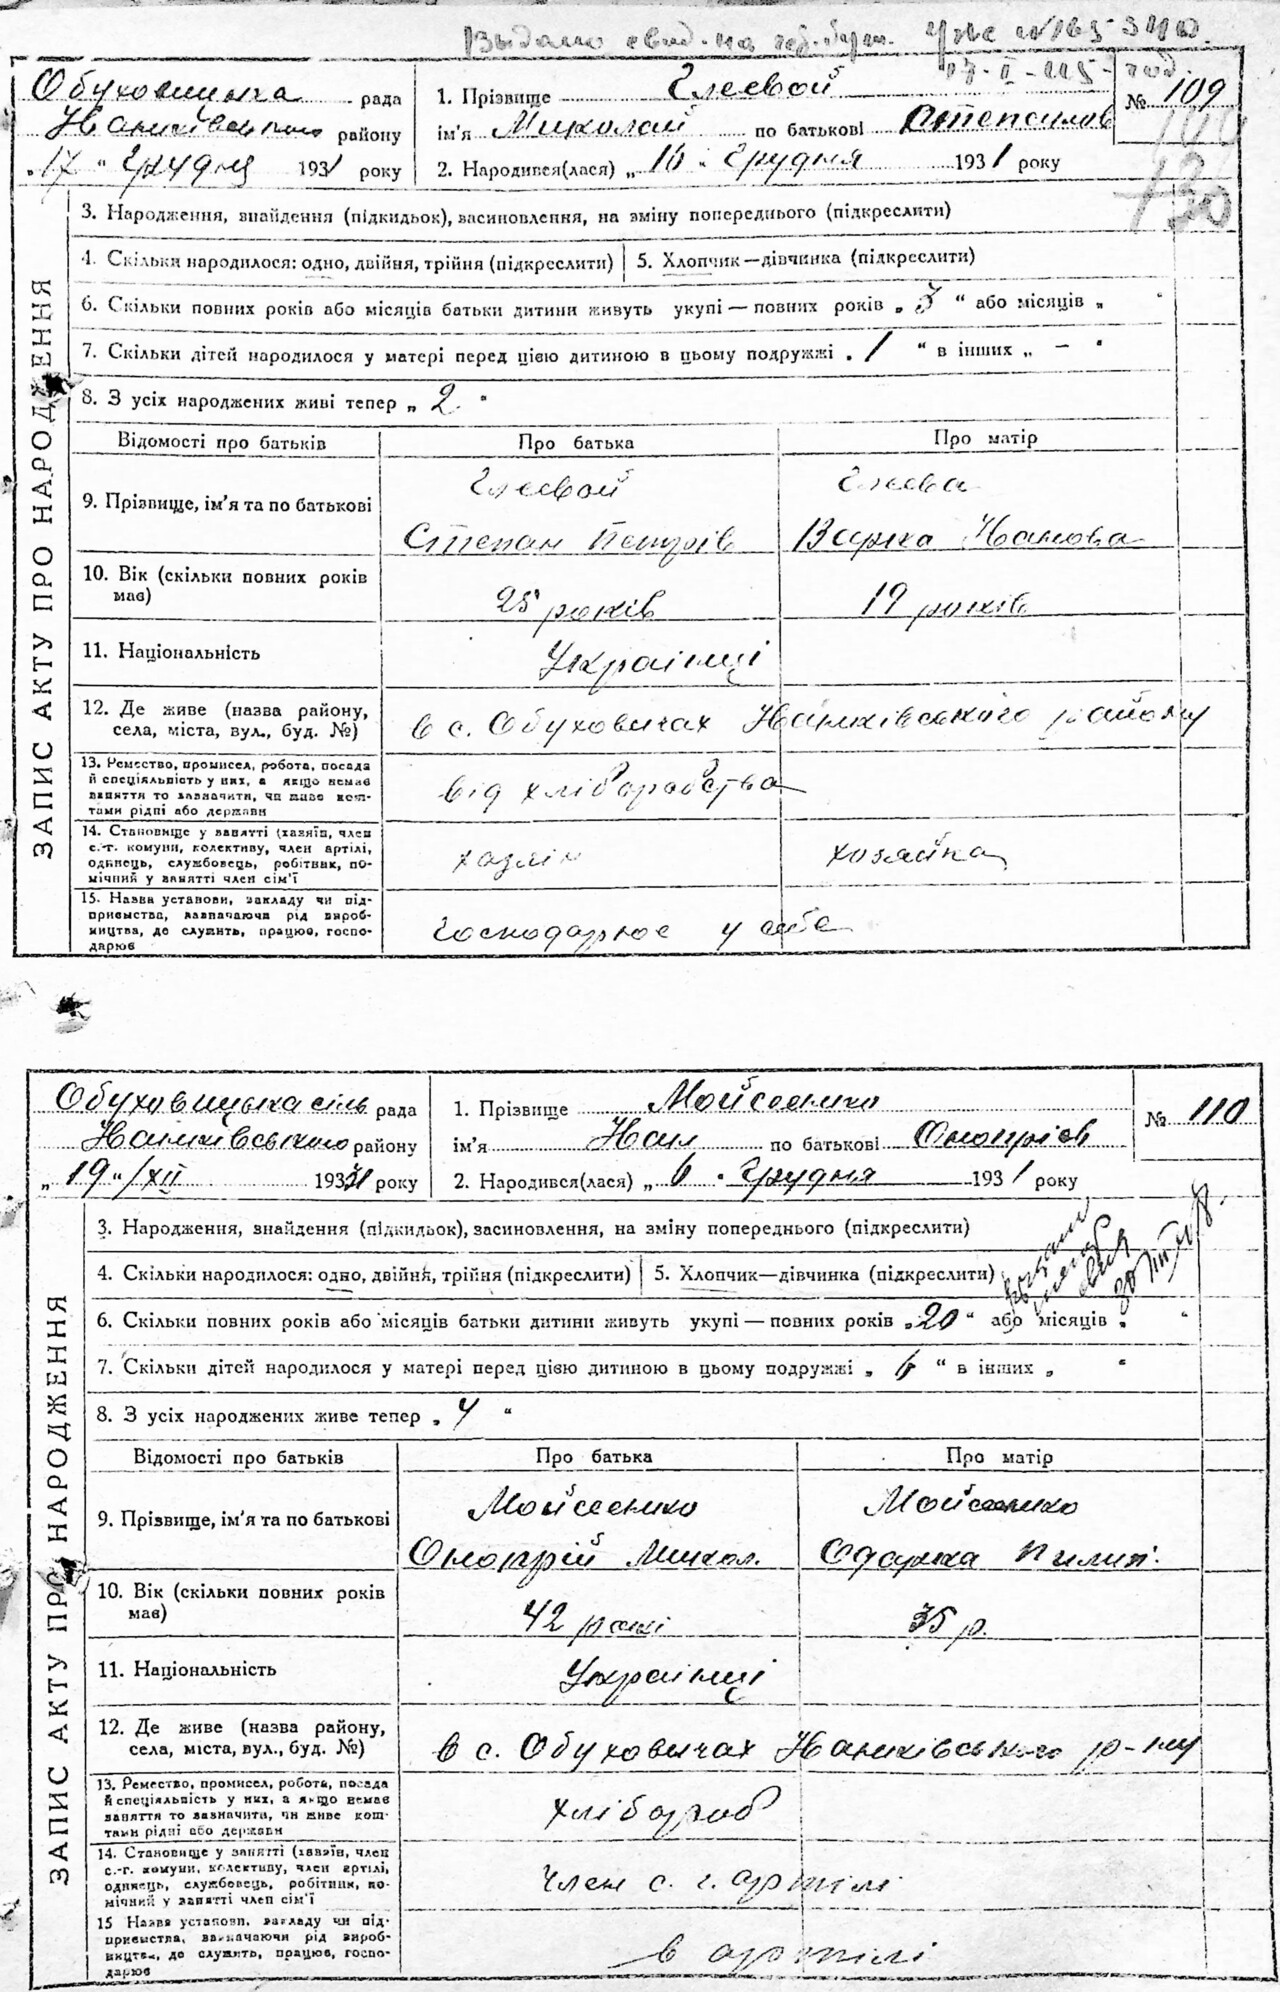 Выдано свид. на
Обуховицька рада
Іванківського району
„17" Грудня 1931 року
1. Прізвище Глевой
ім'я Миколай по батькові Степанов
2. Народився(лася) „16" Грудня 1931 року
№ 109
130
ЗАПИС АКТУ ПРО НАРОДЖЕННЯ
3. Народження, внайдення (підкидьок), васиновлення, на зміну попереднього (підкреслити)
4. Скільки народилося: одно, двійня, трійня (підкреслити) 5. Хлопчик—дівчинка (підкреслити)
6. Скільки повних років або місяців батьки дитини живуть укупі — повних років „3" або місяців „ "
7. Скільки дітей народилося у матері перед цією дитиною в цьому подружжі „1" в інших „ — "
8. З усіх народжених живі тепер „2"
Відомості про батьків Про батька Про матір
9. Прізвище, ім'я та по батькові
Глевой Глева
Степан Петрів Варка Іванова
10. Вік (скільки повних років має)
25 років 19 років
11. Національність Українці
12. Де живе (назва району, села, міста, вул., буд. №)
в с. Обуховичах Іванківського району
13. Ремество, промисел, робота, посада й спеціяльність у них, а якщо немає ваняття то зазначити, чи живе коштами рідні або держави
від хліборобства
14. Становище у ванятті (хазяїн, член с.-г. комуни, колективу, член артілі, одинець, службовець, робітник, помічний у ванятті член сім'ї
хазяїн хозяйка
15. Назва установи, закладу чи підприємства, вазначаючи рід виробництва, де служить, працює, господарює
Господарює у себе
Обуховицька сіль рада
Іванківського району
„19"/XII 1931 року
1. Прізвище Мойсеенко
ім'я Іван по батькові Онопріев
2. Народився(лася) „6" Грудня 1931 року
№ 110
ЗАПИС АКТУ ПРО НАРОДЖЕННЯ
3. Народження, знайдення (підкидьок), засиновлення, на зміну попереднього (підкреслити)
4. Скільки народилося: одно, двійня, трійня (підкреслити) 5. Хлопчик—дівчинка (підкреслити)
6. Скільки повних років або місяців батьки дитини живуть укупі — повних років „20" або місяців „ "
7. Скільки дітей народилося у матері перед цією дитиною в цьому подружжі „6" в інших „ "
8. З усіх народжених живе тепер „4"
Відомості про батьків Про батька Про матір
9. Прізвище, ім'я та по батькові
Мойсеенко Мойсеенко
Онопрій Микол. Одарка Пилип.
10. Вік (скільки повних років має)
42 рокі 35 р.
11. Національність Українці
12. Де живе (назва району, села, міста, вул., буд. №)
в с. Обуховичах Іванківського р-ну
13. Ремество, промисел, робота, посада й спеціяльність у них, а якщо немає ваняття то зазначити, чи живе коштами рідні або держави
хлібороб
14. Становище у занятті (хазяїн, член с.-г. комуни, колективу, член артілі, одинець, службовець, робітник, помічний у занятті член сім'ї
член с. г. артілі
15 Назва установи, закладу чи підприємства, вазначаючи рід виробництва, де служить, працює, господарює
в артілі